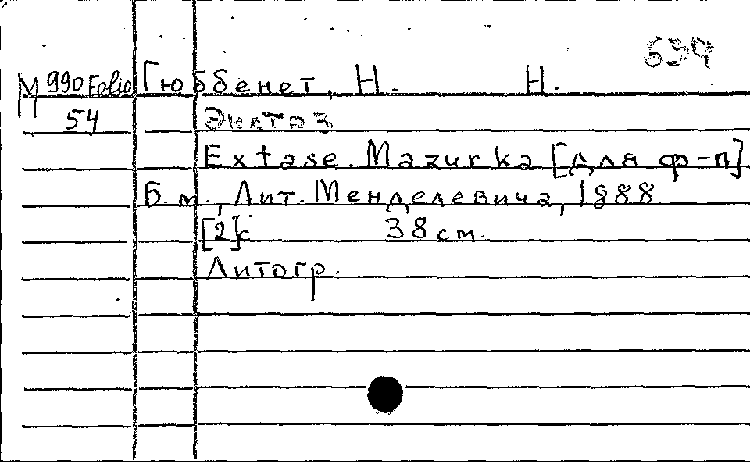 599
M 990 Folio Гюббенет, Н. Н.
54 Экстаз
Extase. Mazurka [для ф-п]
Б.м., Лит. Менделевича, 1888
[2]с 38 см.
Литогр.